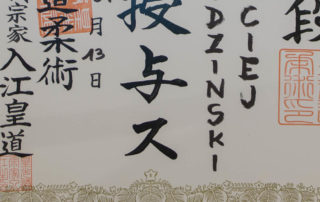 段
CIEJ
DZINSKI
授与ス
月13日
道柔術
宗家入江皇道